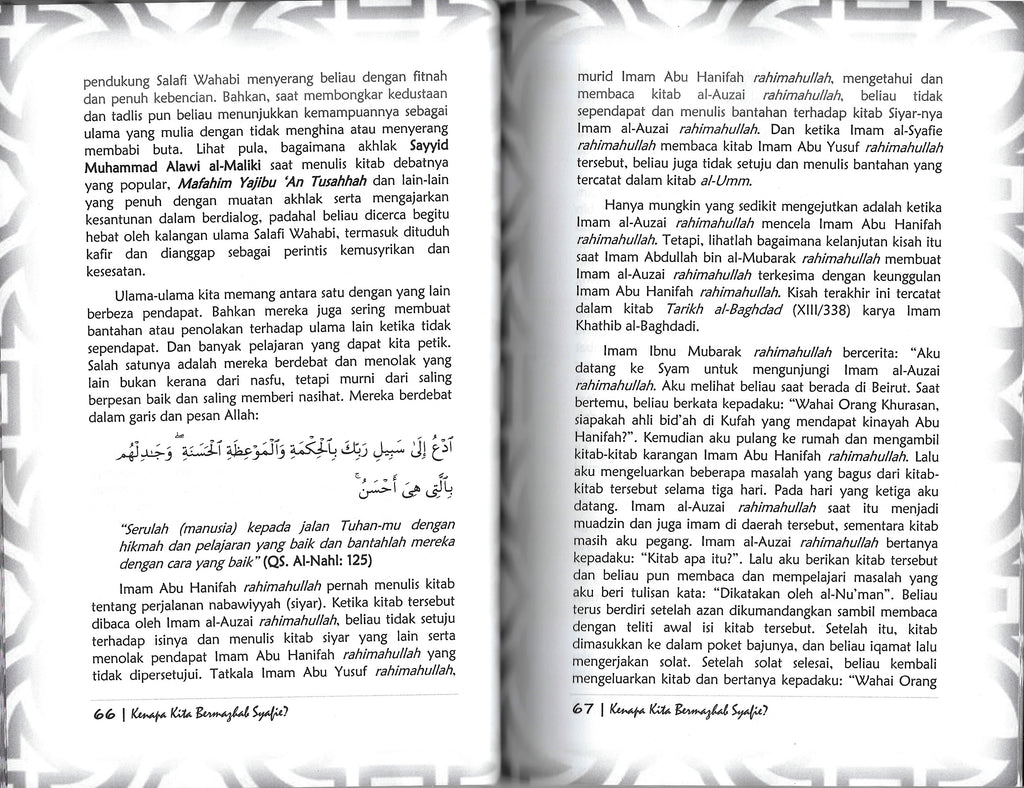 pendukung Salafi Wahabi menyerang beliau dengan fitnah
dan penuh kebencian. Bahkan, saat membongkar kedustaan
dan tadlis pun beliau menunjukkan kemampuannya sebagai
ulama yang mulia dengan tidak menghina atau menyerang
membabi buta. Lihat pula, bagaimana akhlak Sayyid
Muhammad Alawi al-Maliki saat menulis kitab debatnya
yang popular, Mafahim Yajibu ‘An Tusahhah dan lain-lain
yang penuh dengan muatan akhlak serta mengajarkan
kesantunan dalam berdialog, padahal beliau dicerca begitu
hebat oleh kalangan ulama Salafi Wahabi, termasuk dituduh
kafir dan dianggap sebagai perintis kemusyrikan dan
kesesatan.
Ulama-ulama kita memang antara satu dengan yang lain
berbeza pendapat. Bahkan mereka juga sering membuat
bantahan atau penolakan terhadap ulama lain ketika tidak
sependapat. Dan banyak pelajaran yang dapat kita petik.
Salah satunya adalah mereka berdebat dan menolak yang
lain bukan kerana dari nasfu, tetapi murni dari saling
berpesan baik dan saling memberi nasihat. Mereka berdebat
dalam garis dan pesan Allah:
ٱدْعُ إِلَىٰ سَبِيلِ رَبِّكَ بِٱلْحِكْمَةِ وَٱلْمَوْعِظَةِ ٱلْحَسَنَةِ ۖ وَجَٰدِلْهُم
بِٱلَّتِى هِىَ أَحْسَنُ ۚ
“Serulah (manusia) kepada jalan Tuhan-mu dengan
hikmah dan pelajaran yang baik dan bantahlah mereka
dengan cara yang baik” (QS. Al-Nahl: 125)
Imam Abu Hanifah rahimahullah pernah menulis kitab
tentang perjalanan nabawiyyah (siyar). Ketika kitab tersebut
dibaca oleh Imam al-Auzai rahimahullah, beliau tidak setuju
terhadap isinya dan menulis kitab siyar yang lain serta
menolak pendapat Imam Abu Hanifah rahimahullah yang
tidak dipersetujui. Tatkala Imam Abu Yusuf rahimahullah,
66 | Kenapa Kita Bermazhab Syafie?
murid Imam Abu Hanifah rahimahullah, mengetahui dan
membaca kitab al-Auzai rahimahullah, beliau tidak
sependapat dan menulis bantahan terhadap kitab Siyar-nya
Imam al-Auzai rahimahullah. Dan ketika Imam al-Syafie
rahimahullah membaca kitab Imam Abu Yusuf rahimahullah
tersebut, beliau juga tidak setuju dan menulis bantahan yang
tercatat dalam kitab al-Umm.
Hanya mungkin yang sedikit mengejutkan adalah ketika
Imam al-Auzai rahimahullah mencela Imam Abu Hanifah
rahimahullah. Tetapi, lihatlah bagaimana kelanjutan kisah itu
saat Imam Abdullah bin al-Mubarak rahimahullah membuat
Imam al-Auzai rahimahullah terkesima dengan keunggulan
Imam Abu Hanifah rahimahullah. Kisah terakhir ini tercatat
dalam kitab Tarikh al-Baghdad (XIII/338) karya Imam
Khathib al-Baghdadi.
Imam Ibnu Mubarak rahimahullah bercerita: “Aku
datang ke Syam untuk mengunjungi Imam al-Auzai
rahimahullah. Aku melihat beliau saat berada di Beirut. Saat
bertemu, beliau berkata kepadaku: “Wahai Orang Khurasan,
siapakah ahli bid'ah di Kufah yang mendapat kinayah Abu
Hanifah?”. Kemudian aku pulang ke rumah dan mengambil
kitab-kitab karangan Imam Abu Hanifah rahimahullah. Lalu
aku mengeluarkan beberapa masalah yang bagus dari kitab-
kitab tersebut selama tiga hari. Pada hari yang ketiga aku
datang. Imam al-Auzai rahimahullah saat itu menjadi
muadzin dan juga imam di daerah tersebut, sementara kitab
masih aku pegang. Imam al-Auzai rahimahullah bertanya
kepadaku: “Kitab apa itu?”. Lalu aku berikan kitab tersebut
dan beliau pun membaca dan mempelajari masalah yang
aku beri tulisan kata: “Dikatakan oleh al-Nu'man”. Beliau
terus berdiri setelah azan dikumandangkan sambil membaca
dengan teliti awal isi kitab tersebut. Setelah itu, kitab
dimasukkan ke dalam poket bajunya, dan beliau iqamat lalu
mengerjakan solat. Setelah solat selesai, beliau kembali
mengeluarkan kitab dan bertanya kepadaku: “Wahai Orang
67 | Kenapa Kita Bermazhab Syafie?